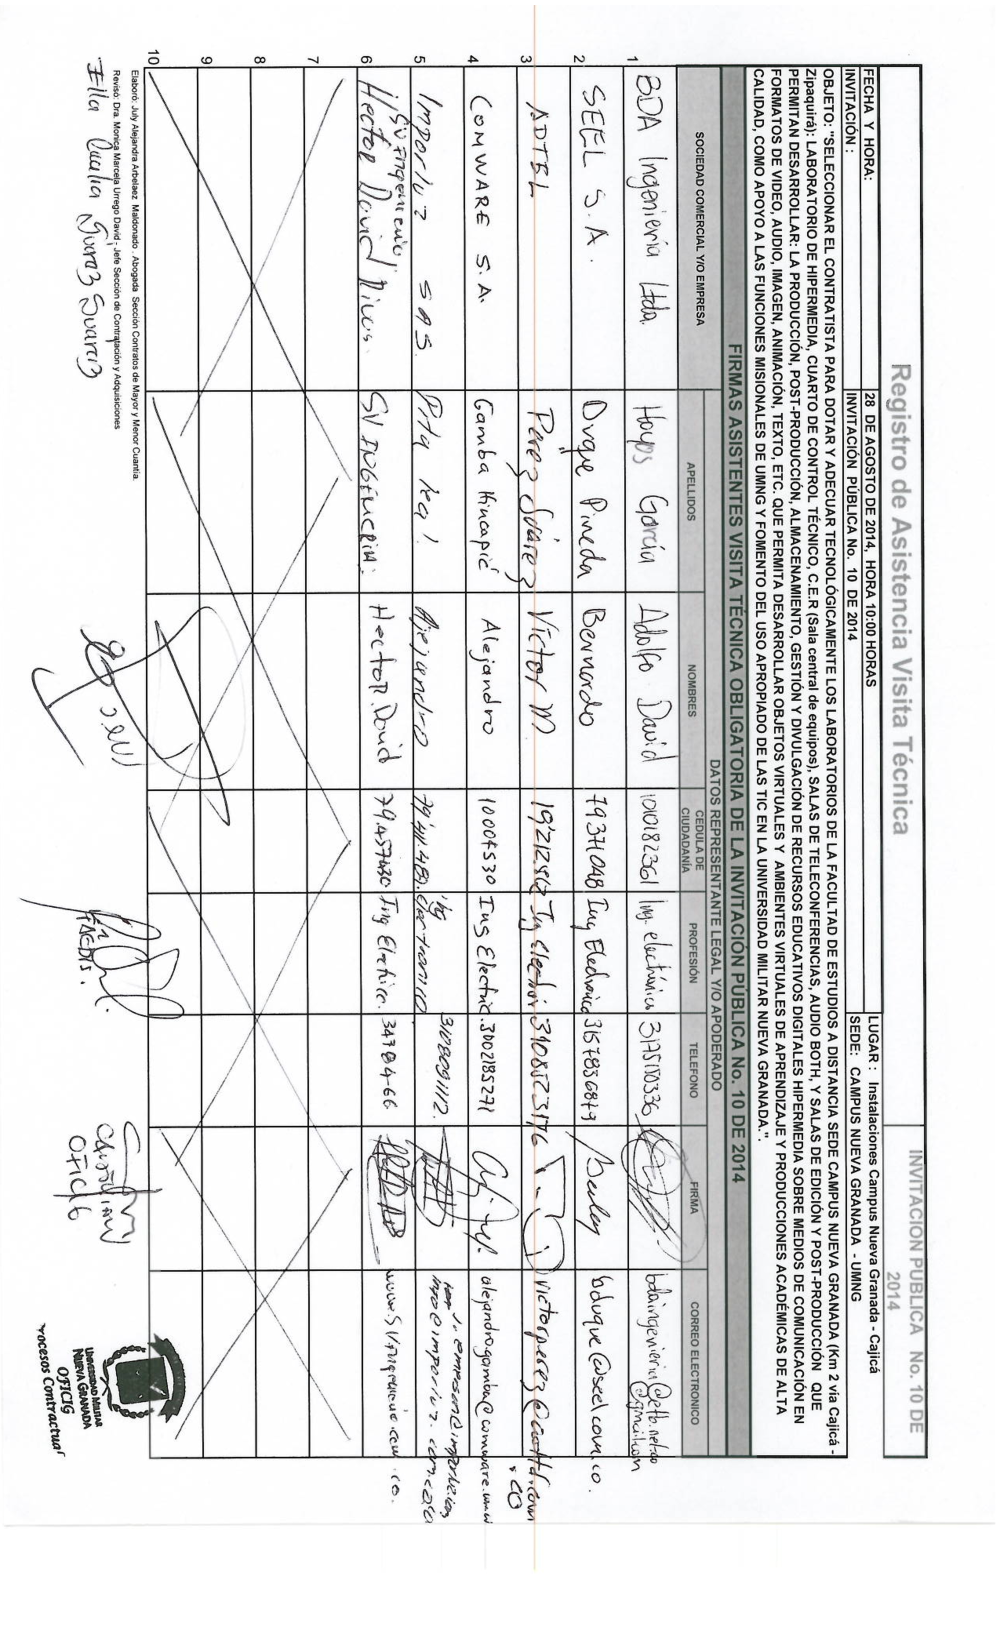 Registro de Asistencia Visita Técnica
INVITACION PUBLICA No. 10 DE 2014
FECHA Y HORA: 28 DE AGOSTO DE 2014, HORA 10:00 HORAS LUGAR: Instalaciones Campus Nueva Granada - Cajicá
INVITACIÓN: INVITACIÓN PÚBLICA No. 10 DE 2014 SEDE: CAMPUS NUEVA GRANADA - UMNG
OBJETO: "SELECCIONAR EL CONTRATISTA PARA DOTAR Y ADECUAR TECNOLÓGICAMENTE LOS LABORATORIOS DE LA FACULTAD DE ESTUDIOS A DISTANCIA SEDE CAMPUS NUEVA GRANADA (Km 2 vía Cajicá -
Zipaquirá): LABORATORIO DE HIPERMEDIA, CUARTO DE CONTROL TÉCNICO, C.E.R (Sala central de equipos), SALAS DE TELECONFERENCIAS, AUDIO BOTH, Y SALAS DE EDICIÓN Y POST-PRODUCCIÓN QUE
PERMITAN DESARROLLAR: LA PRODUCCIÓN, POST-PRODUCCIÓN, ALMACENAMIENTO, GESTIÓN Y DIVULGACIÓN DE RECURSOS EDUCATIVOS DIGITALES HIPERMEDIA SOBRE MEDIOS DE COMUNICACIÓN EN
FORMATOS DE VIDEO, AUDIO, IMAGEN, ANIMACIÓN, TEXTO, ETC. QUE PERMITA DESARROLLAR OBJETOS VIRTUALES Y AMBIENTES VIRTUALES DE APRENDIZAJE Y PRODUCCIONES ACADÉMICAS DE ALTA
CALIDAD, COMO APOYO A LAS FUNCIONES MISIONALES DE UMNG Y FOMENTO DEL USO APROPIADO DE LAS TIC EN LA UNIVERSIDAD MILITAR NUEVA GRANADA."
FIRMAS ASISTENTES VISITA TÉCNICA OBLIGATORIA DE LA INVITACIÓN PÚBLICA No. 10 DE 2014
DATOS REPRESENTANTE LEGAL Y/O APODERADO
SOCIEDAD COMERCIAL Y/O EMPRESA APELLIDOS NOMBRES CEDULA DE CIUDADANÍA PROFESIÓN TELEFONO FIRMA CORREO ELECTRONICO
1 BDA Ingeniería Ltda. Hoyos García Adolfo David 1010182361 Ing. electrónico 3175150336
2 SEEL S.A. Duque Pineda Bernardo 79371048 Ing Electronico 3157836849 bduque@seel.com.co.
3 ADTEL Perez Suárez Victor M. 3108523176
4 COMWARE S.A. Gamba Hincapié Alejandro 10004530 Ing Electric. 3002185271
5 Imporluz SAS. Alejandro 3108091112.
6 SV Ingenieria; Hector David Rivas. SV INGENIERIA: Hector David 79.457430 Ing Electrico. 34784-66
7
8
9
10
Elaboró: July Alejandra Arbelaez Maldonado. Abogada Sección Contratos de Mayor y Menor Cuantía.
Revisó: Dra. Monica Marcela Urrego David; Jefe Sección de Contratación y Adquisiciones
Suarez Suarez
FAEDIS.
Christian
OFICIG
UNIVERSIDAD MILITAR
NUEVA GRANADA
OFICIG
rocesos Contractual